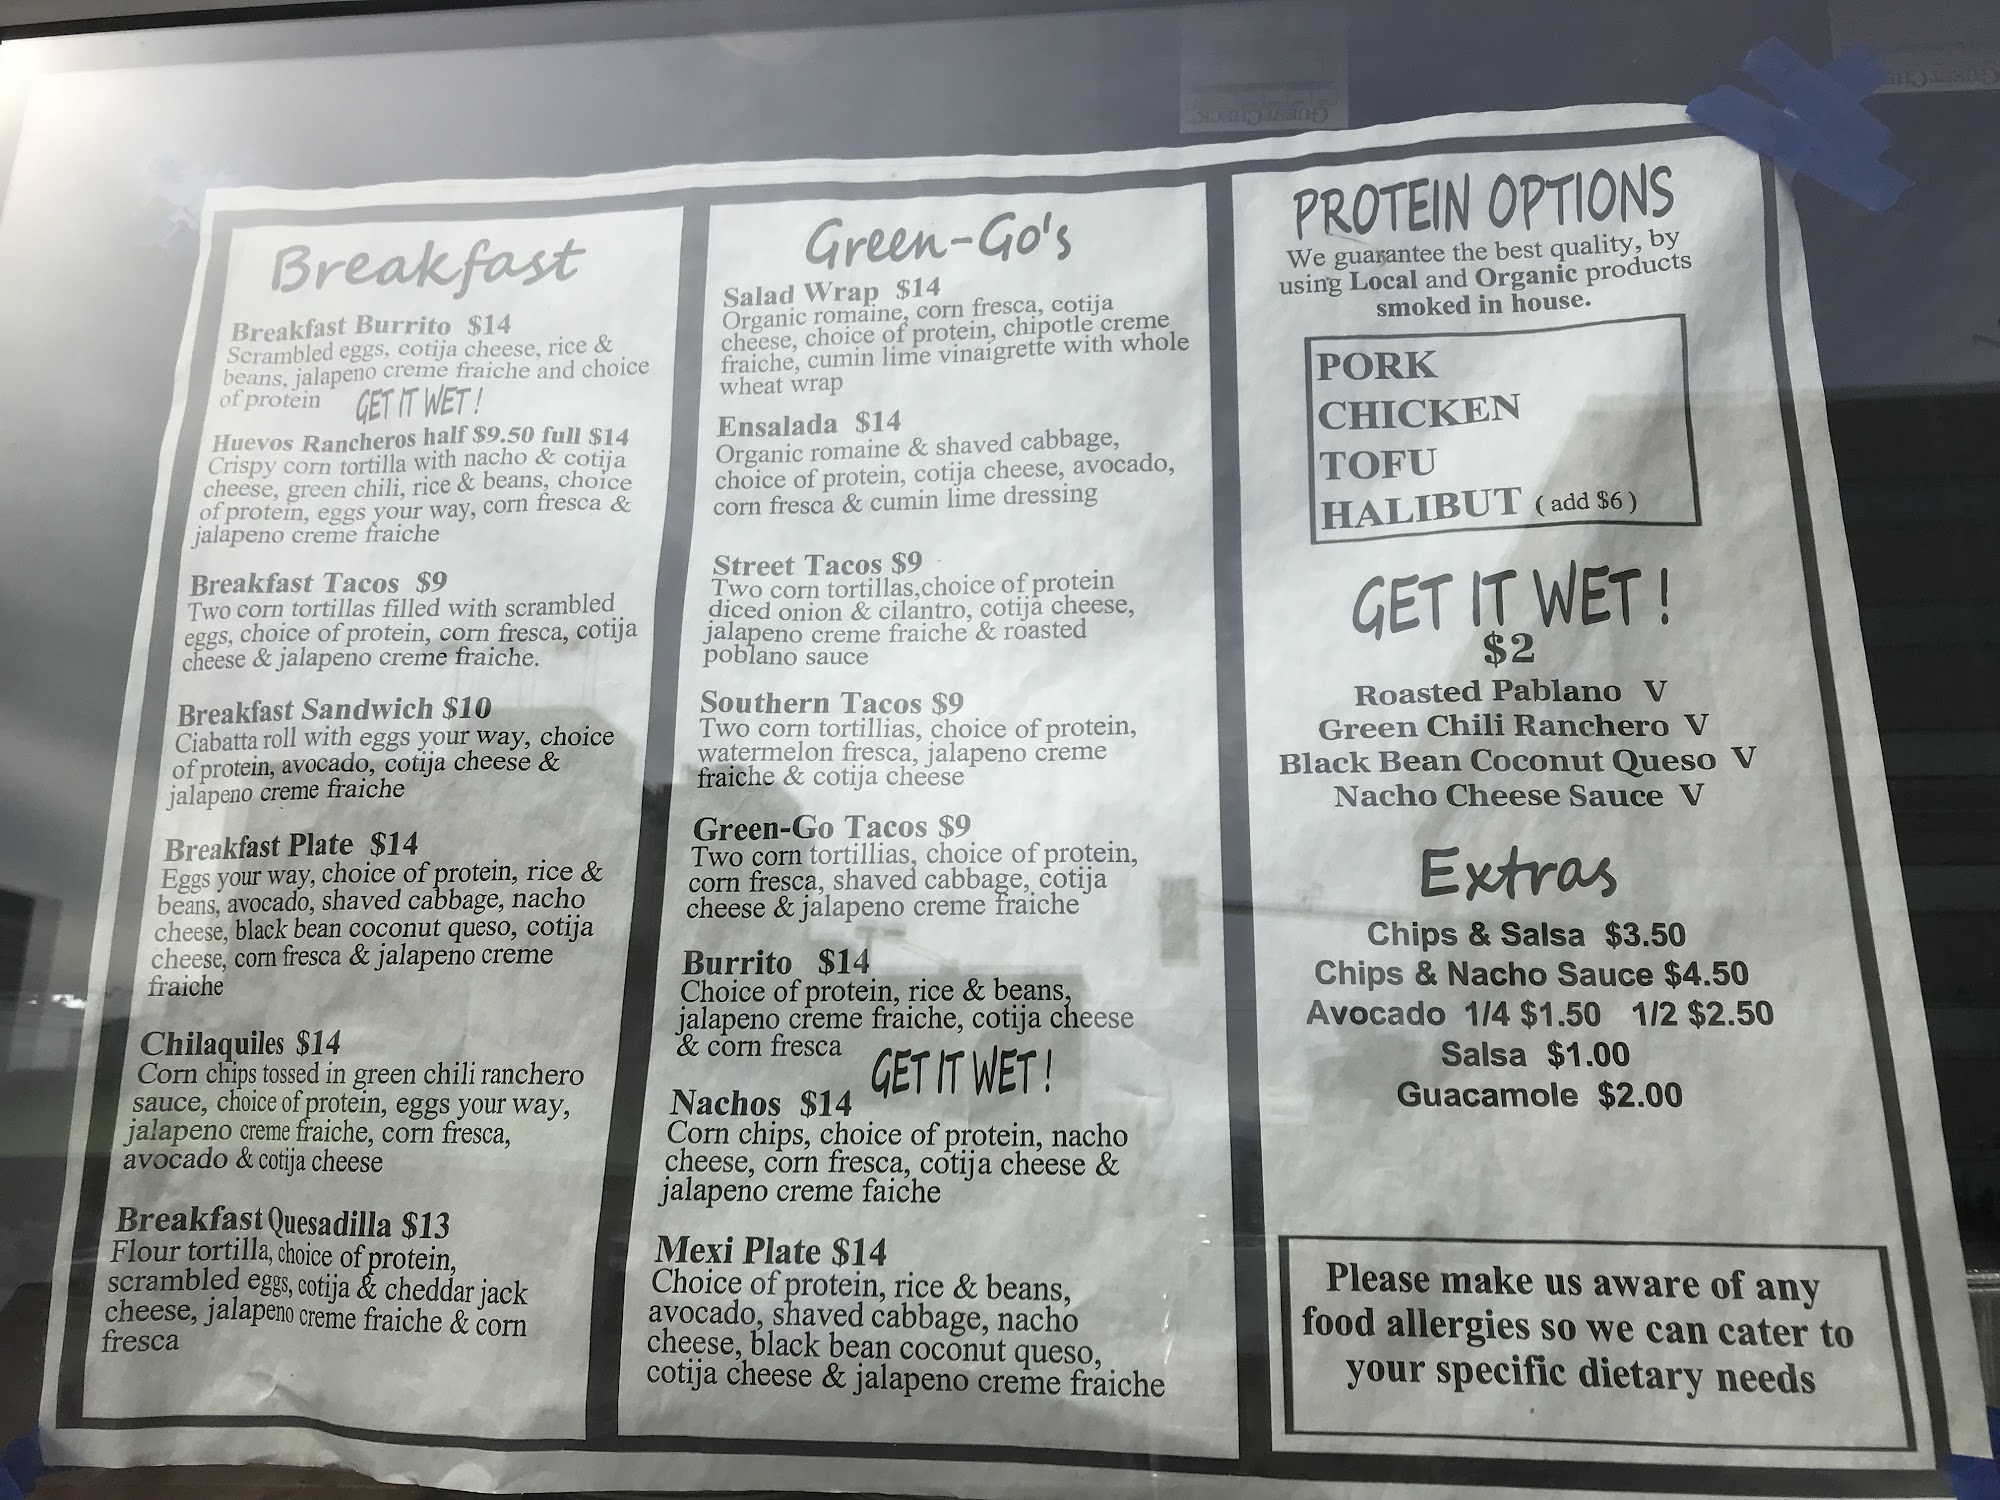 GUESTCHECK
Breakfast
Breakfast Burrito $14
Scrambled eggs, cotija cheese, rice &
beans, jalapeno creme fraiche and choice
of protein GET IT WET !
Huevos Rancheros half $9.50 full $14
Crispy corn tortilla with nacho & cotija
cheese, green chili, rice & beans, choice
of protein, eggs your way, corn fresca &
jalapeno creme fraiche
Breakfast Tacos $9
Two corn tortillas filled with scrambled
eggs, choice of protein, corn fresca, cotija
cheese & jalapeno creme fraiche.
Breakfast Sandwich $10
Ciabatta roll with eggs your way, choice
of protein, avocado, cotija cheese &
jalapeno creme fraiche
Breakfast Plate $14
Eggs your way, choice of protein, rice &
beans, avocado, shaved cabbage, nacho
cheese, black bean coconut queso, cotija
cheese, corn fresca & jalapeno creme
fraiche
Chilaquiles $14
Corn chips tossed in green chili ranchero
sauce, choice of protein, eggs your way,
jalapeno creme fraiche, corn fresca,
avocado & cotija cheese
Breakfast Quesadilla $13
Flour tortilla, choice of protein,
scrambled eggs, cotija & cheddar jack
cheese, jalapeno creme fraiche & corn
fresca
Green-Go's
Salad Wrap $14
Organic romaine, corn fresca, cotija
cheese, choice of protein, chipotle creme
fraiche, cumin lime vinaigrette with whole
wheat wrap
Ensalada $14
Organic romaine & shaved cabbage,
choice of protein, cotija cheese, avocado,
corn fresca & cumin lime dressing
Street Tacos $9
Two corn tortillas,choice of protein
diced onion & cilantro, cotija cheese,
jalapeno creme fraiche & roasted
poblano sauce
Southern Tacos $9
Two corn tortillias, choice of protein,
watermelon fresca, jalapeno creme
fraiche & cotija cheese
Green-Go Tacos $9
Two corn tortillias, choice of protein,
corn fresca, shaved cabbage, cotija
cheese & jalapeno creme fraiche
Burrito $14
Choice of protein, rice & beans,
jalapeno creme fraiche, cotija cheese
& corn fresca GET IT WET !
Nachos $14
Corn chips, choice of protein, nacho
cheese, corn fresca, cotija cheese &
jalapeno creme faiche
Mexi Plate $14
Choice of protein, rice & beans,
avocado, shaved cabbage, nacho
cheese, black bean coconut queso,
cotija cheese & jalapeno creme fraiche
PROTEIN OPTIONS
We guarantee the best quality, by
using Local and Organic products
smoked in house.
PORK
CHICKEN
TOFU
HALIBUT ( add $6 )
GET IT WET !
$2
Roasted Pablano V
Green Chili Ranchero V
Black Bean Coconut Queso V
Nacho Cheese Sauce V
Extras
Chips & Salsa $3.50
Chips & Nacho Sauce $4.50
Avocado 1/4 $1.50 1/2 $2.50
Salsa $1.00
Guacamole $2.00
Please make us aware of any
food allergies so we can cater to
your specific dietary needs